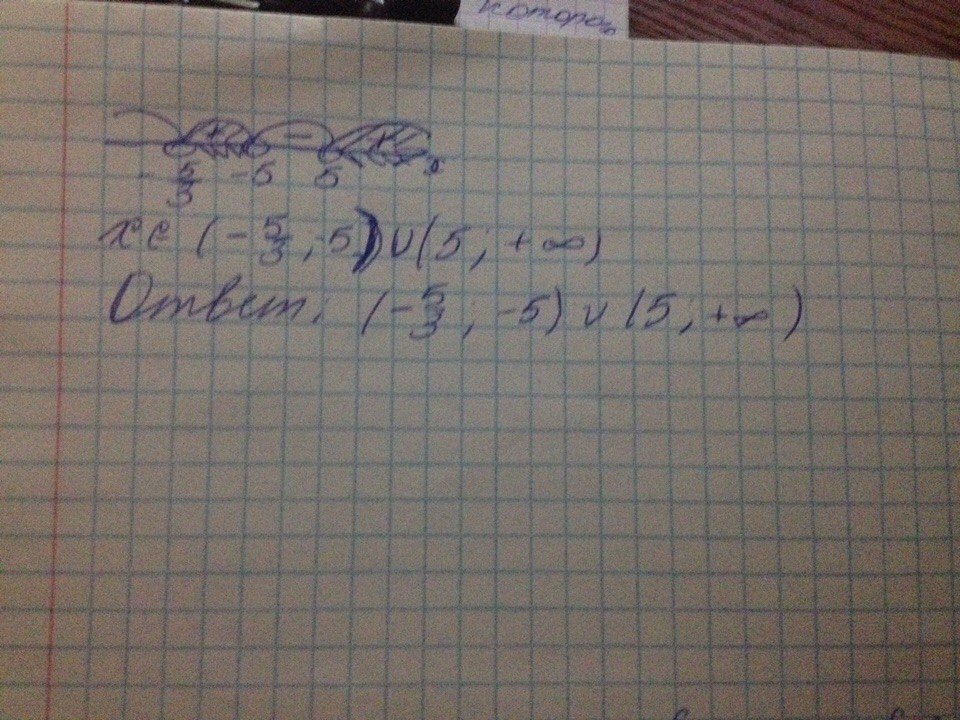 которо
+ − +
-5/3 -5 5 x
x∈ (-5/3; -5)∪(5; +∞)
Ответ: (-5/3; -5)∪(5; +∞)